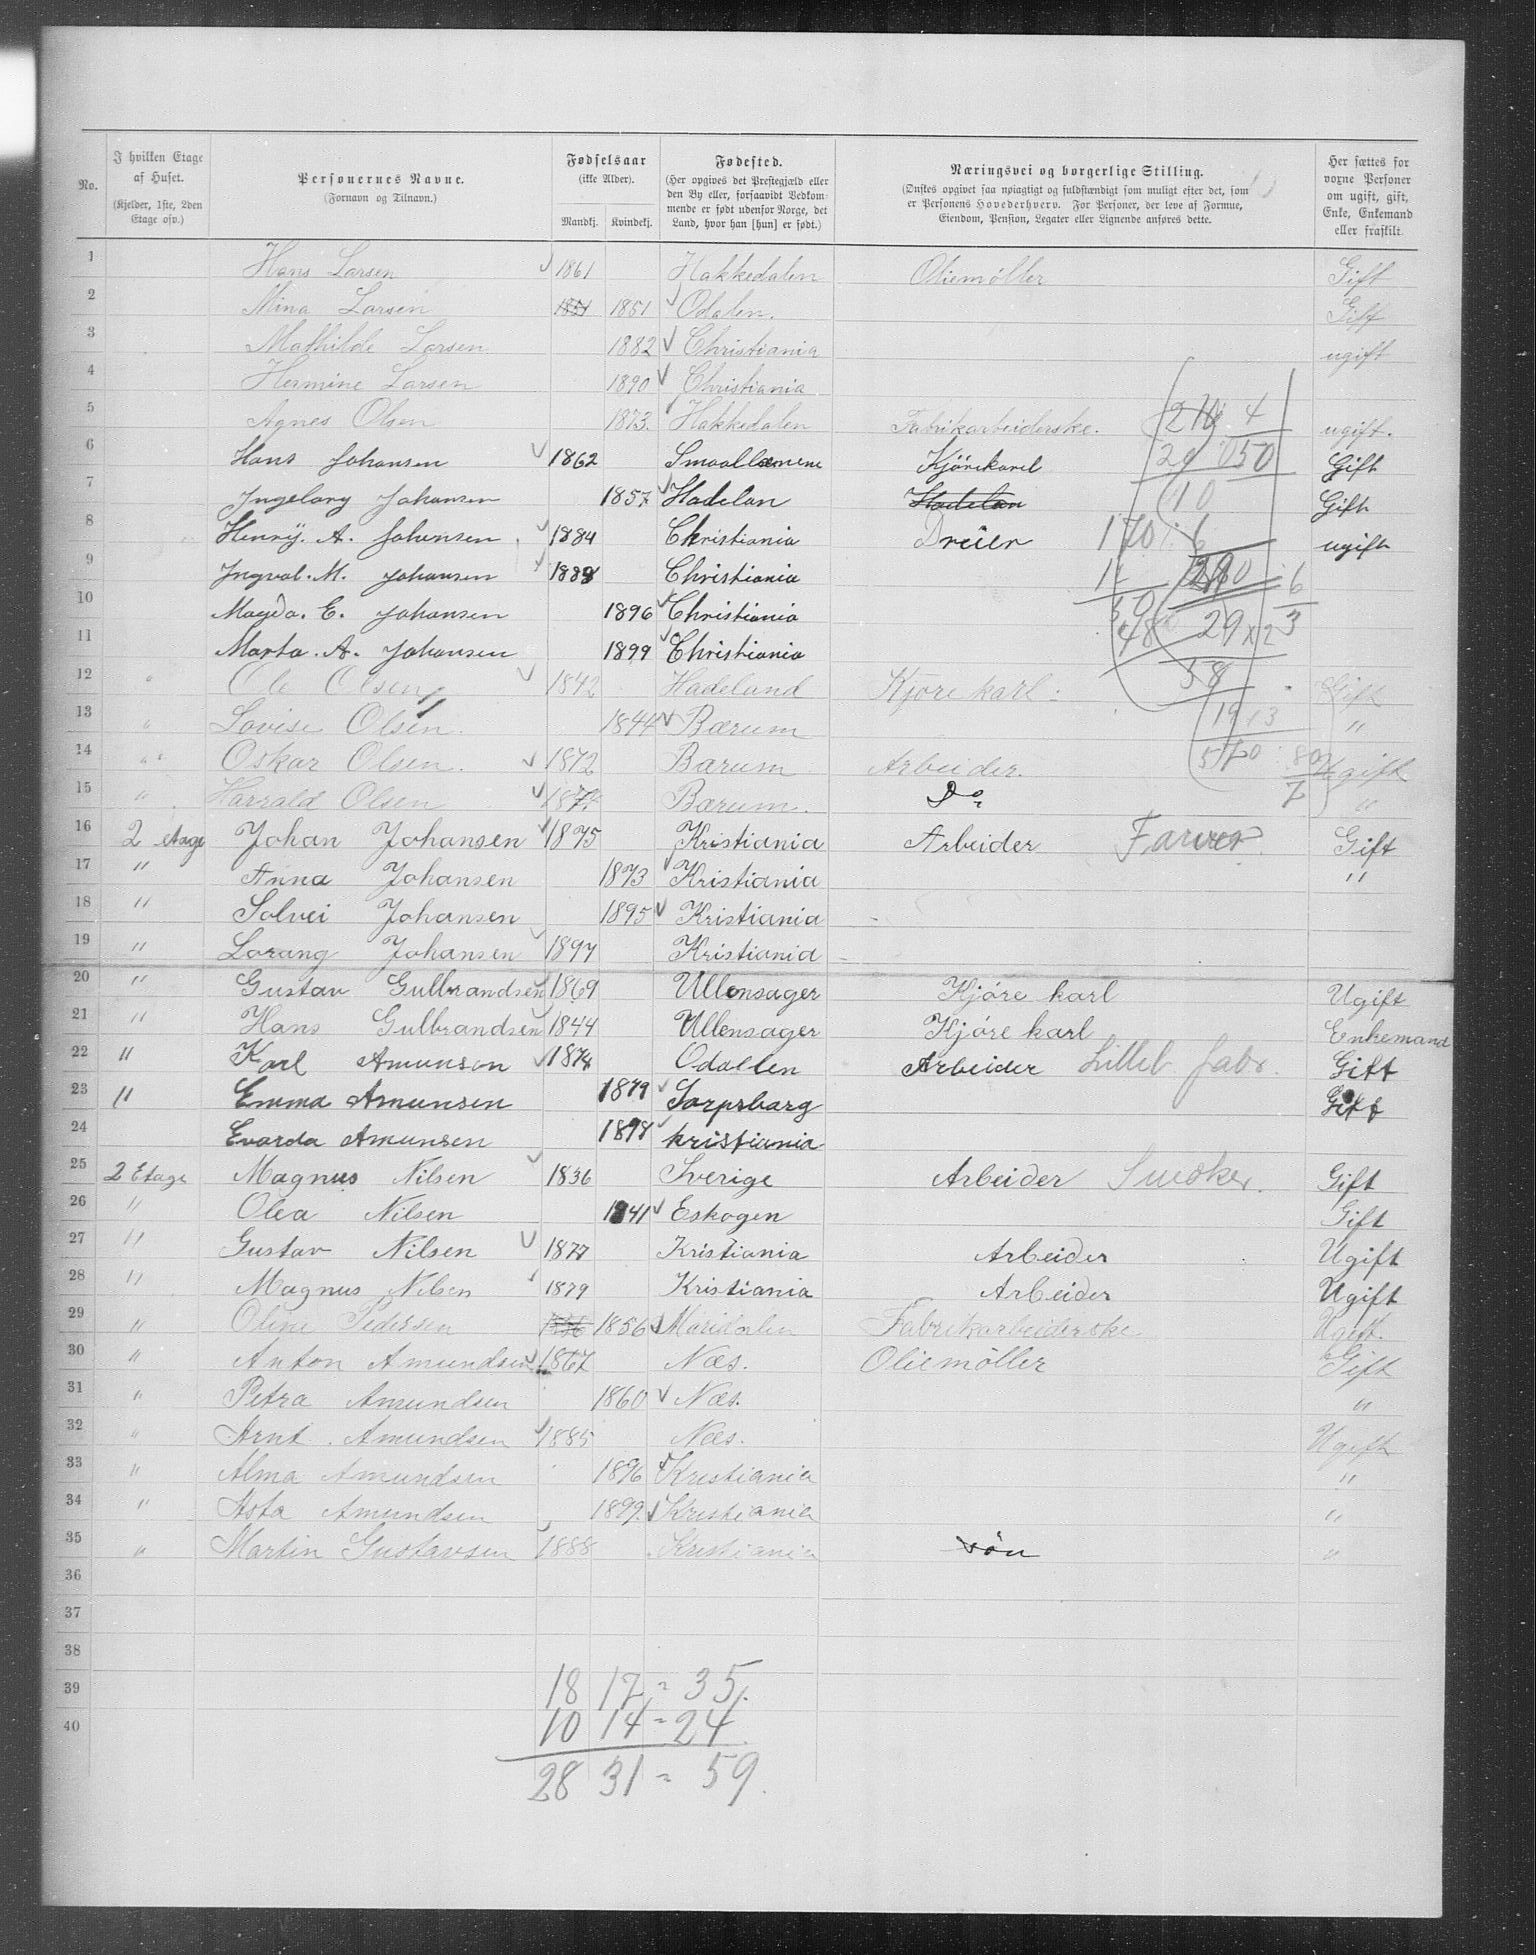 No.
I hvilken Etage af Huset. (Kjelder, 1ste, 2den Etage osv.)
Personernes Navne. (Fornavn og Tilnavn.)
Fødselsaar (ikke Alder). Mandkj. Kvindekj.
Fødested. (Her opgives det Prestegjæld eller den By eller, forsaavidt Vedkommende er født udenfor Norge, det Land, hvor han [hun] er født.)
Næringsvei og borgerlige Stilling. (Ønskes opgivet saa nøiagtigt og fuldstændigt som muligt efter det, som er Personens Hovederhverv. For Personer, der leve af Formue, Eiendom, Pension, Legater eller Lignende anføres dette.
Her sættes for voxne Personer om ugift, gift, Enke, Enkemand eller fraskilt.
1 Hans Larsen 1861 Hakkedalen Oliemøller Gift
2 Mina Larsen 1851 1851 Odalen. Gift
3 Mathilde Larsen 1882 Christiania ugift
4 Hermine Larsen 1890 Christiania
5 Agnes Olsen 1873. Hakkedalen Fabrikarbeiderske. ugift.
6 Hans Johansen 1862 Smaallenene Kjørekarl Gift
7 Ingeborg Johansen 1857 Hadelan Hadelan Gift
8 Henrÿ. A. Johansen 1884 Christiania Dreier ugift
9 Ingval. M. Johansen 1888 Christiania
10 Magda. E. Johansen 1896 Christiania
11 Marta. A. Johansen 1899 Christiania
12 " Ole Olsen 1842 Hadeland Kjøre karl. Gift
13 " Lovise Olsen. 1844 Bærum "
14 " Oskar Olsen. 1872 Bærum Arbeider. Ugift
15 " Harrald Olsen 1874 Bærum. Do "
16 2 etage Johan Johansen 1875 Kristiania Arbeider Farver Gift
17 " Anna Johansen 1873 Kristiania "
18 " Solvei Johansen 1895 Kristiania
19 " Lorang Johansen 1897 Kristiania
20 " Gustav Gulbrandsen 1869 Ullensager Kjøre karl Ugift
21 " Hans Gulbrandsen 1844 Ullensager Kjøre karl Enkemand
22 " Karl Amunsen 1874 Odallen Arbeider Lilleb fabr. Gift
23 " Emma Amunsen 1879 Sarpsbarg Gift
24 Evarda Amunsen 1898 kristiania
25 2 Etage Magnus Nilsen 1836 Sverige Arbeider Snedker. Gift
26 " Olea Nilsen 1841 Eskogen Gift
27 " Gustav Nilsen 1877 Kristiania Arbeider Ugift
28 " Magnus Nilsen 1879 Kristiania Arbeider Ugift
29 " Oline Pedersen 1856 1856 Maridalen Fabrikarbeiderske Ugift.
30 " Anton Amundsen 1867 Næs. Oliemøller Gift
31 " Petra Amundsen 1860 Næs. "
32 " Arnt. Amundsen 1885 Næs. Ugift
33 " Alma Amundsen 1896 Kristiania "
34 " Asta Amundsen 1899. Kristiania "
35 " Martin Gustavsen 1888 Kristiania søn "
36
37
38
39 18 17 = 35.
40 10 14 = 24
28 31 = 59.